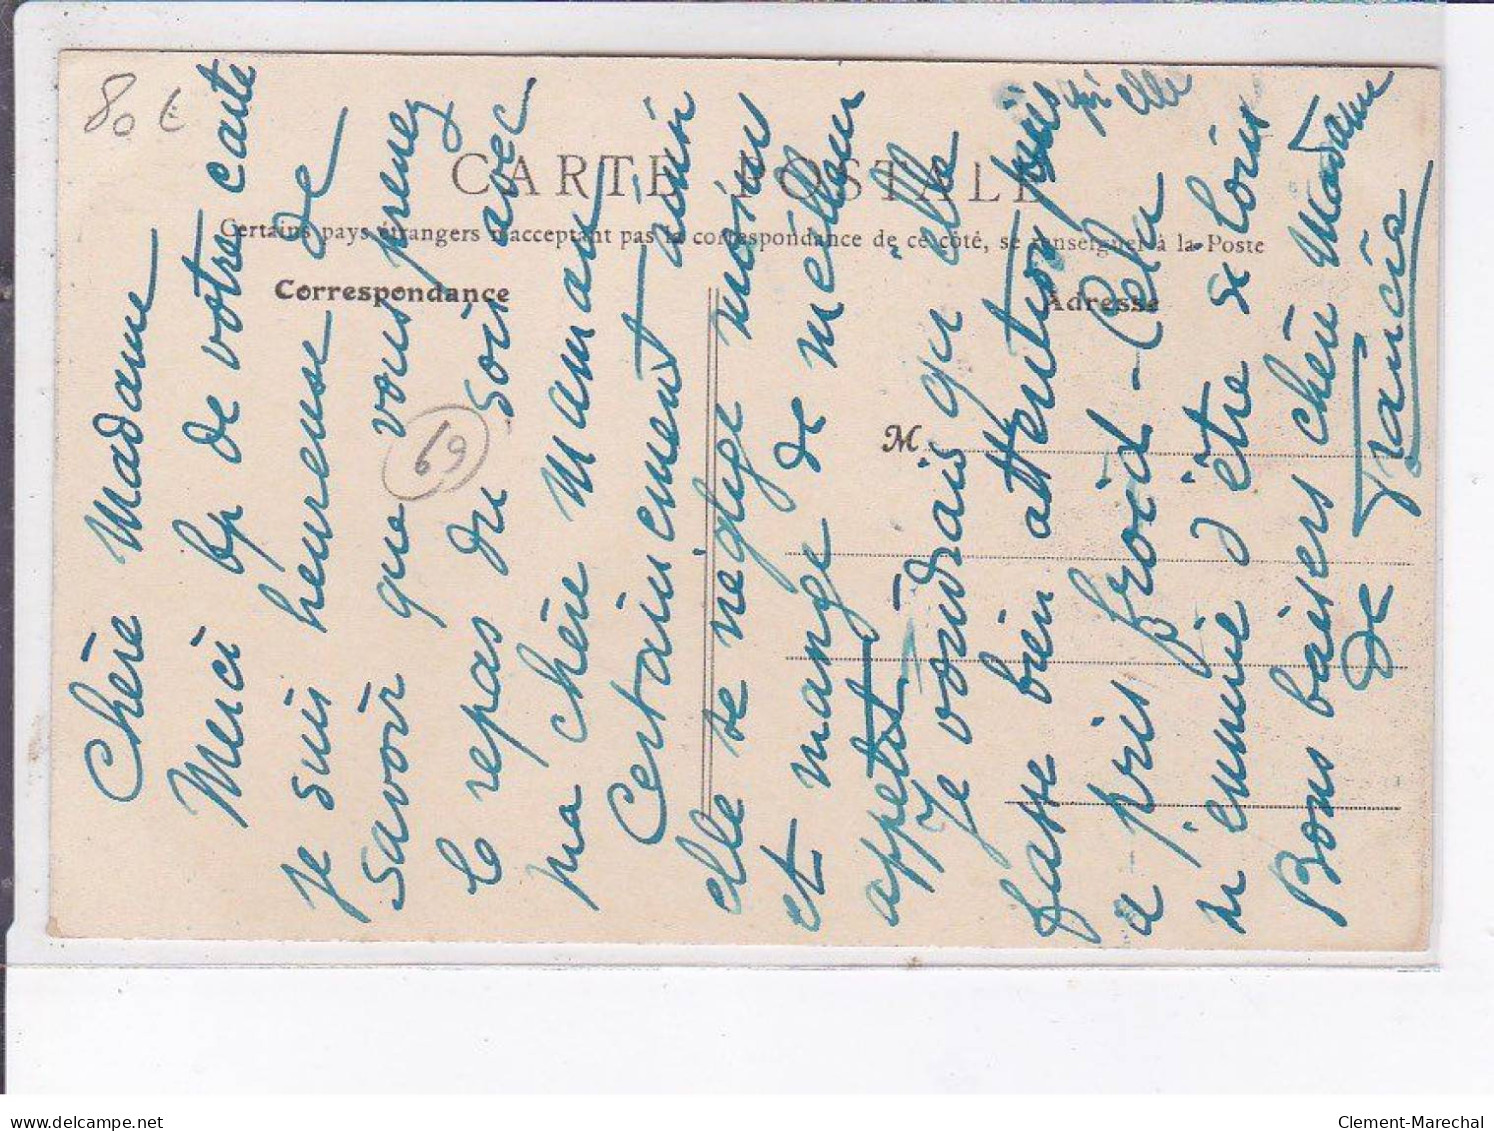 80 €
CARTE POSTALE
Certains pays étrangers n'acceptant pas la correspondance de ce côté, se renseigner à la Poste
Correspondance
Adresse
M
69
Chère Madame
Merci bp de votre carte
je suis heureuse de
savoir que vous prenez
le repas du soir avec
ma chère Maman
Certainement ainsi
elle se néglige moins
et mange de meilleur
appetit.
Je voudrais qu'elle
fasse bien attention puis qu'elle
a pris froid - Cela
m'ennuie d'être si loin
Bons baisers chère Madame
de Francia
delcampe.net
Clement-Marechal